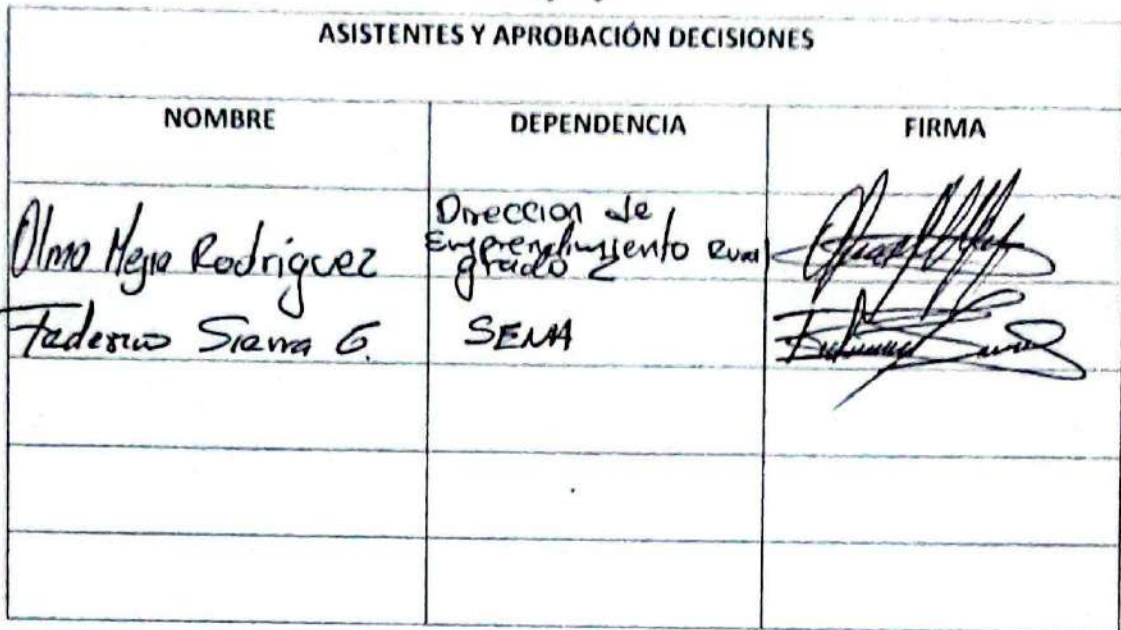 ASISTENTES Y APROBACIÓN DECISIONES
NOMBRE DEPENDENCIA FIRMA
Olmo Mejia Rodriguez
Direccion de
Emprendimiento Rural
grado 2
Federico Sierra G.
SENA